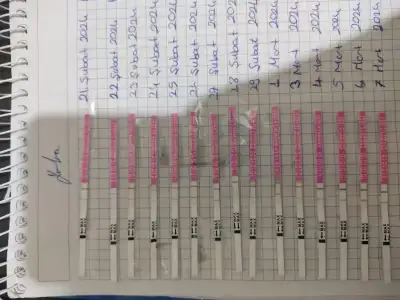 21 Şubat 2024
22 Şubat 2024
23 Şubat 2024
24 Şubat 2024
25 Şubat 2024
26 Şubat 2024
27 Şubat 2024
28 Şubat 2024
29 Şubat 2024
1 Mart 2024
3 Mart 2024
4 Mart 2024
5 Mart 2024
6 Mart 2024
7 Mart 2024